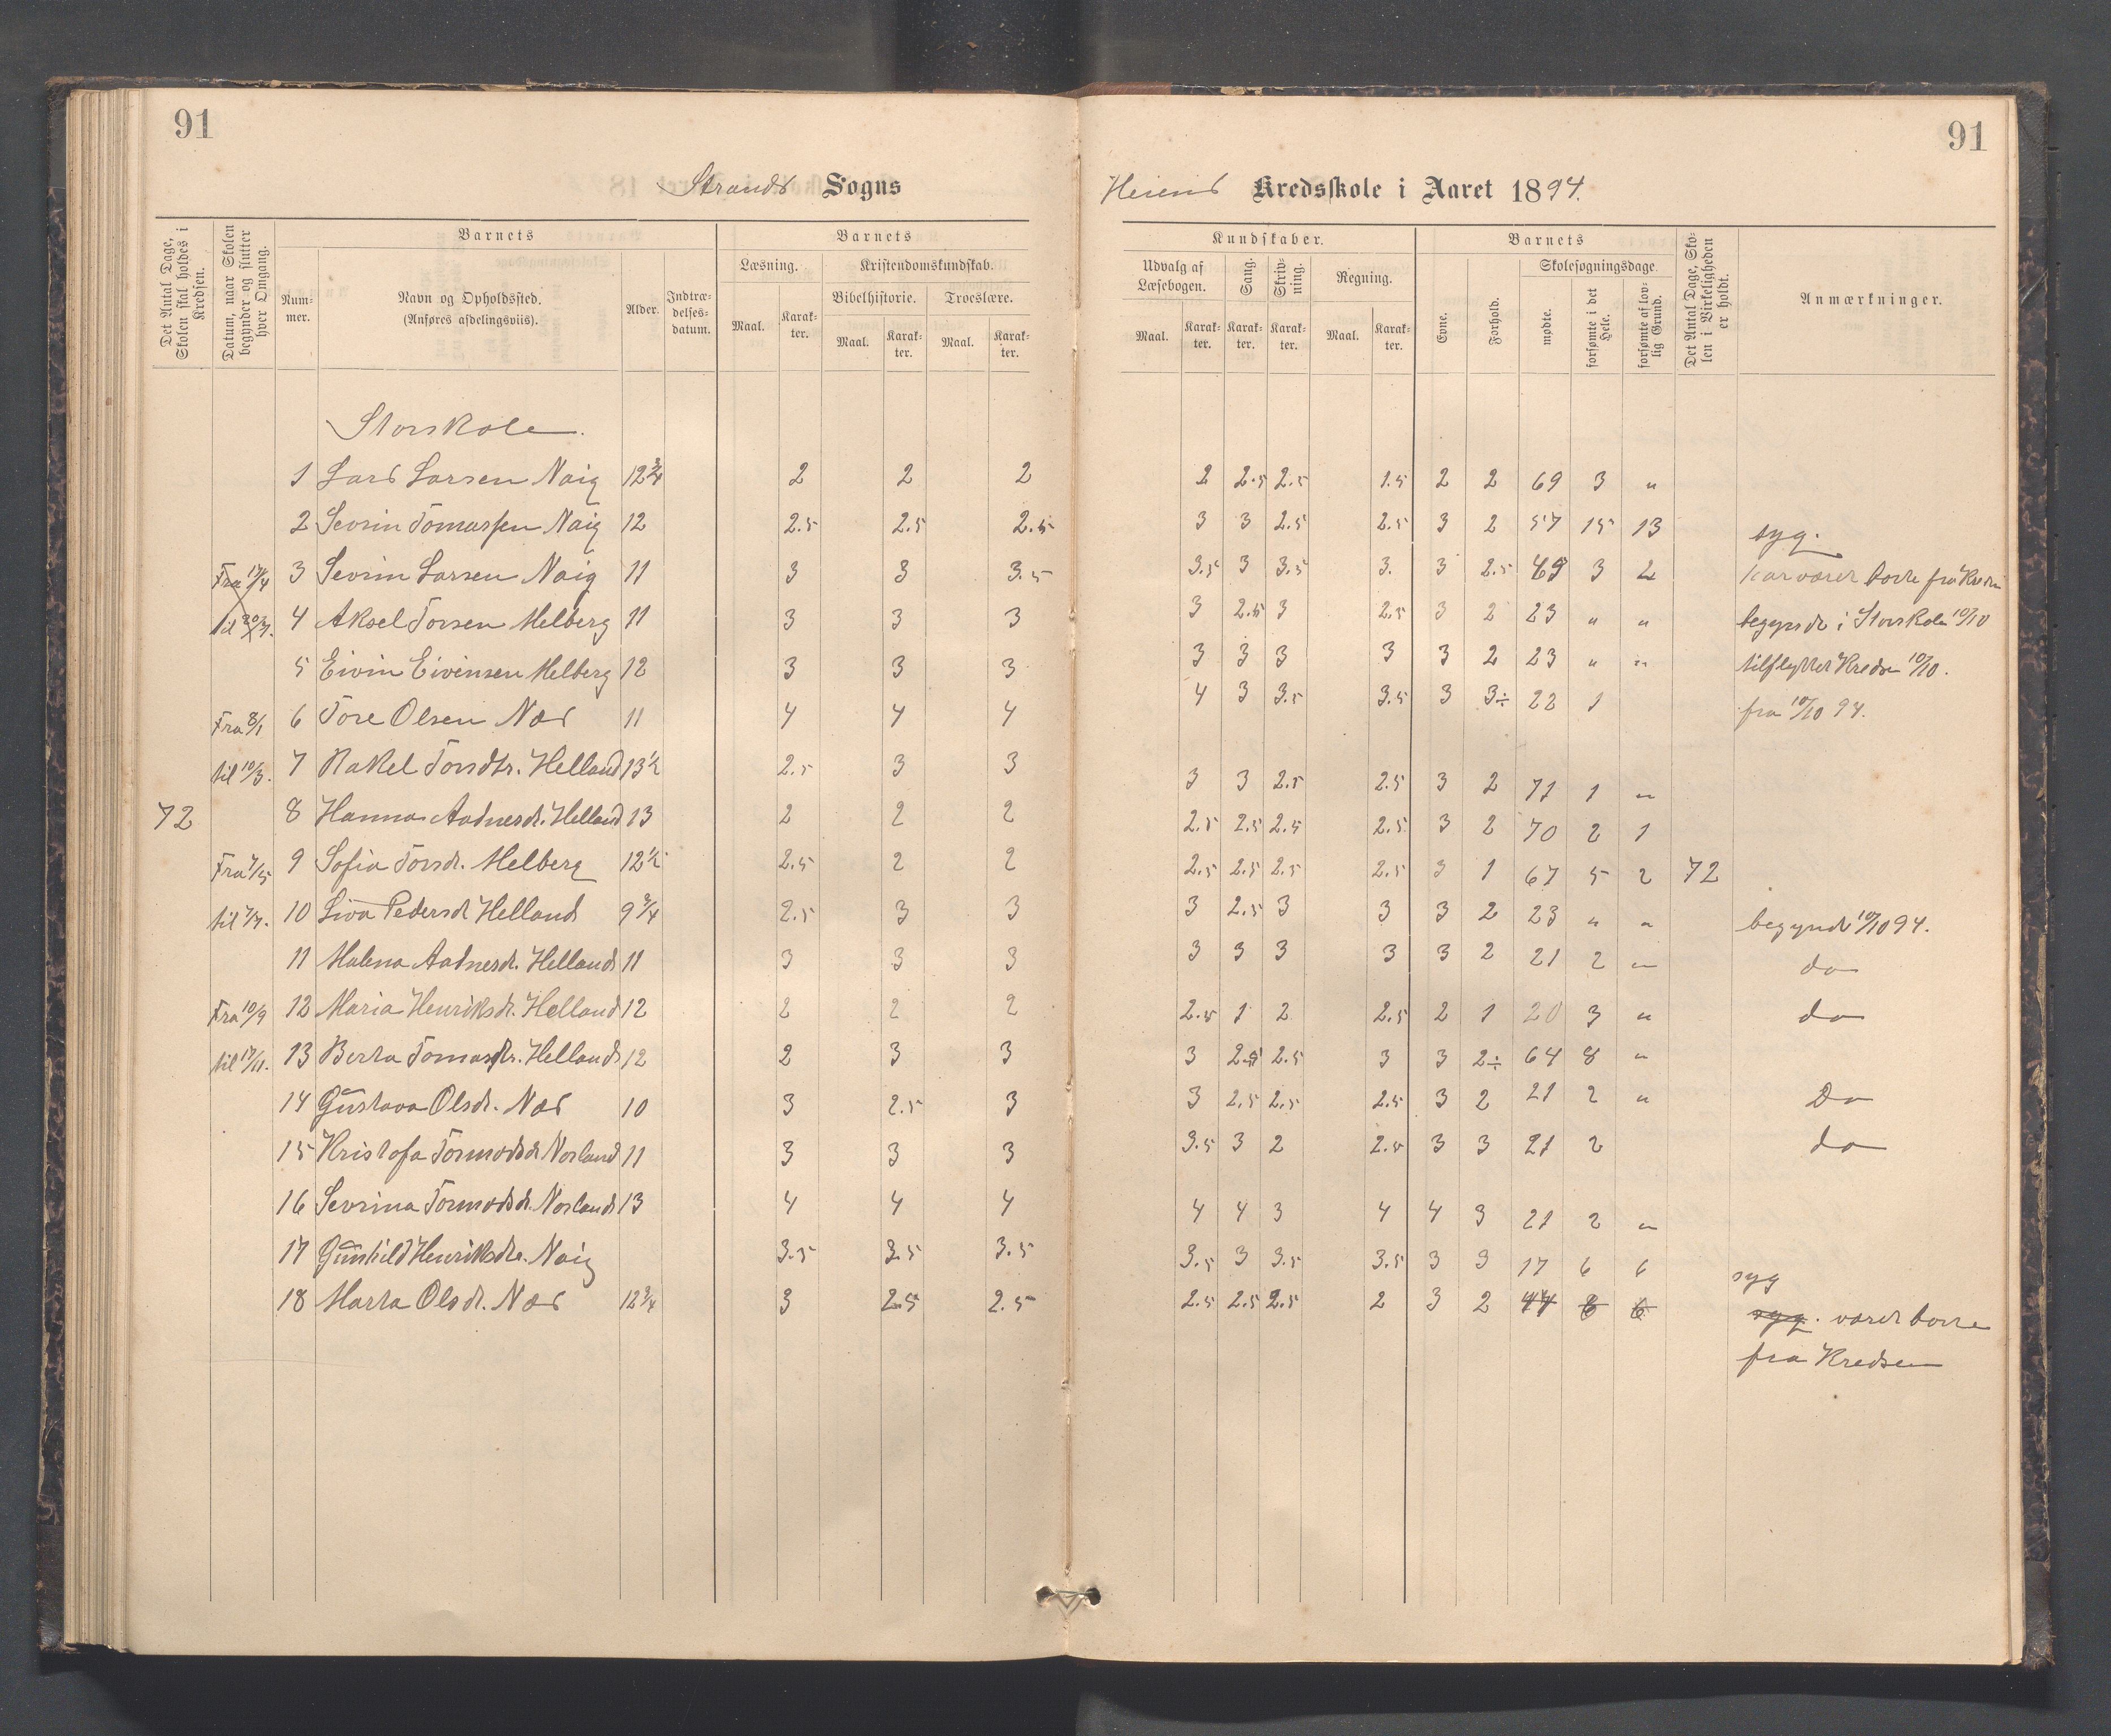 91
91
Strands Sogns
Heiens Kredsskole i Aaret 1894.
Det Antal Dage, Skolen skal holdes i Kredsen.
Datum, naar Skolen begynder og slutter hver Omgang.
Barnets
Nummer.
Navn og Opholdssted.
(Anføres afdelingsviis).
Alder.
Indtrædelsesdatum.
Barnets
Læsning.
Maal.
Karakter.
Kristendomskundskab.
Bibelhistorie.
Troeslære.
Maal.
Karakter.
Maal.
Karakter.
Kundskaber.
Udvalg af Læsebogen.
Sang.
Skrivning.
Regning.
Maal.
Karakter.
Karakter.
Karakter.
Maal.
Karakter.
Barnets
Evne.
Forhold.
Skolesøgningsdage.
mødte.
forsømte i det Hele.
forsømte af lovlig Grund.
Det Antal Dage, Skolen i Virkeligheden er holdt.
Anmærkninger.
Storskole.
1 Lars Larsen Naig 12 3/4 2 2 2 2 2.5 2.5 1.5 2 2 69 3 "
2 Sevrin Tomassen Naig 12 2.5 2.5 2.5 3 3 2.5 2.5 3 2 57 15 13 syg.
Fra 17/4 3 Sevrin Larsen Naig 11 3 3 3.5 3.5 3 3.5 3. 3 2.5 69 3 2 har været borte fra Kredsen
til 4 Aksel Torsen Helberg 11 3 3 3 3 2.5 3 2.5 3 2 23 " " begyndt i Storskolen 10/10
5 Eivin Eivensen Helberg 12 3 3 3 3 3 3 3 3 2 23 " " tilflyttet Kredsen 10/10.
Fra 8/1 6 Tore Olsen Næs 11 4 4 4 4 3 3.5 3.5 3 3÷ 22 1 fra 10/10 94.
til 10/3. 7 Rakel Torsdtr. Helland 13 1/2 2.5 3 3 3 3 2.5 2.5 3 2 71 1 "
72 8 Hanna Aadnesdr. Helland 13 2 2 2 2.5 2.5 2.5 2.5 3 2 70 2 1
Fra 7/5 9 Sofia Torsdr. Helberg 12 1/2 2.5 2 2 2.5 2.5 2.5 2.5 3 1 67 5 2 72
til 7/7. 10 Liva Pedersdr Helland 9 3/4 2.5 3 3 3 2.5 3 3 3 2 23 " " begyndt 10/10 94.
11 Malena Aadnesdr. Helland 11 3 3 3 3 3 3 3 3 2 21 2 " do
Fra 10/9 12 Maria Henriksdr. Helland 12 2 2 2 2.5 1 2 2.5 2 1 20 3 " do
til 17/11. 13 Berta Tomasdtr. Helland 12 2 3 3 3 2.5 2.5 3 3 2÷ 64 8 "
14 Gustava Olsdr. Næs 10 3 2.5 3 3 2.5 2.5 2.5 3 2 21 2 " Do
15 Kristofa Tormodsdr Norland 11 3 3 3 3.5 3 2 2.5 3 3 21 2 do
16 Sevrina Tormodsdr. Norland 13 4 4 4 4 4 3 4 4 3 21 2 "
17 Gunhild Henriksdtr. Naig 3.5 3.5 3.5 3.5 3 3.5 3.5 3 3 17 6 6 syg
18 Marta Olsdr. Næs 12 3/4 3 2.5 2.5 2.5 2.5 2.5 2 3 2 44 8 6 syg. været borte
fra Kredsen